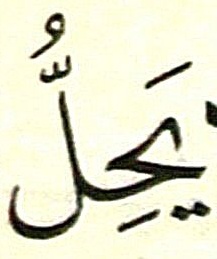 يَحِلُّ